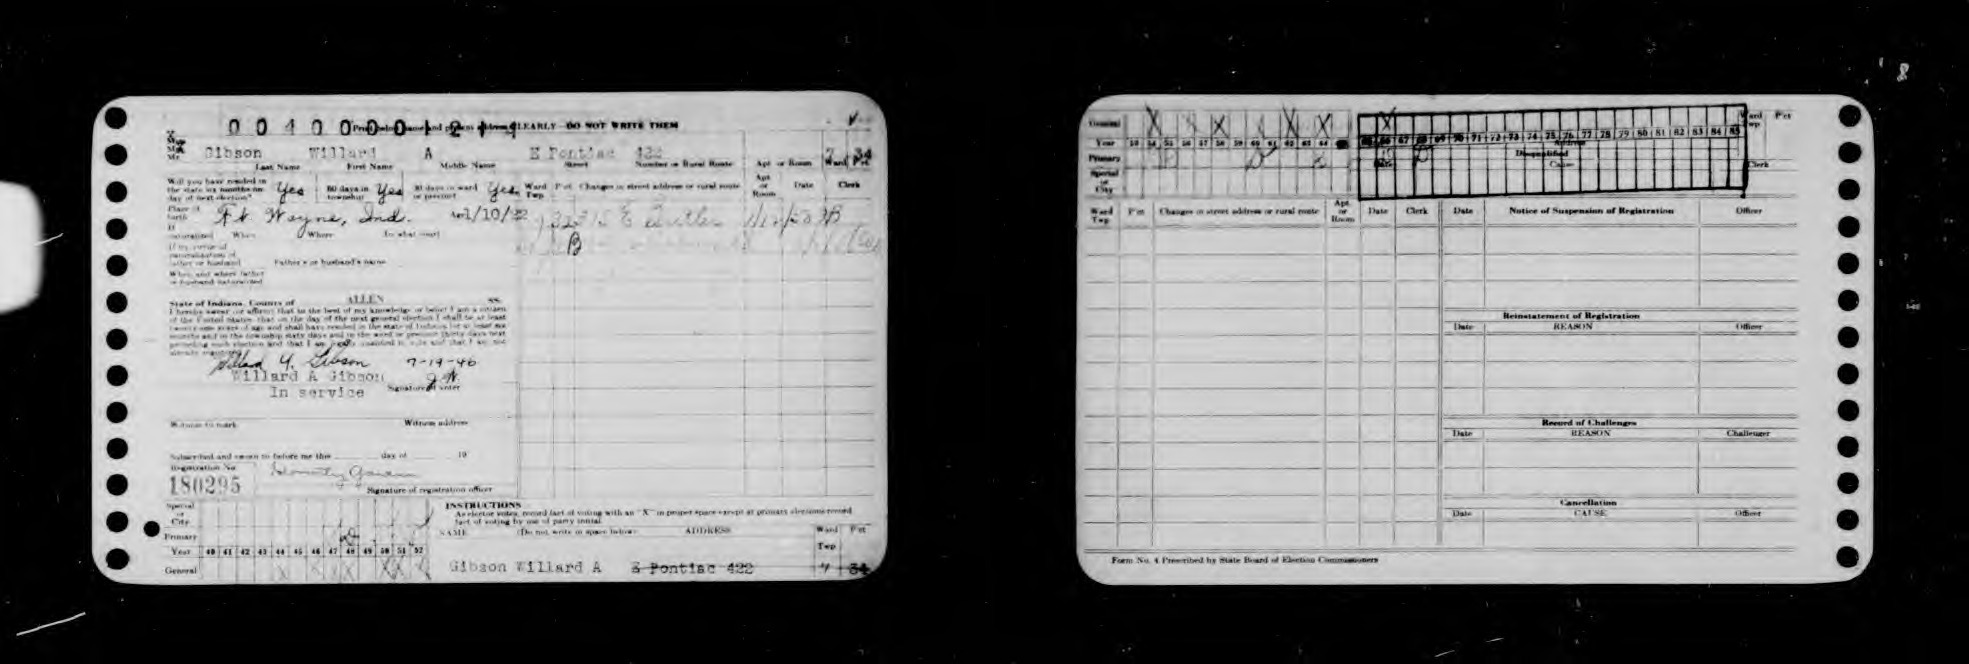 Print below name and present address CLEARLY DO NOT WRITE THEM
Gibson Willard A E Pontiac 422 7 34
Last Name First Name Middle Name Street Number or Rural Route Apt or Room Ward Pct
Will you have resided in
the state six months on
day of next election? Yes 60 days in township Yes 30 days in ward or precinct Yes
Ward Twp Pct Changes in street address or rural route Apt or Room Date Clerk
Place of birth Ft Wayne, Ind. 1/10/22
If naturalized When Where In what court
If by virtue of
naturalization of
father or husband Father's or husband's name
When and where father
or husband naturalized
State of Indiana, County of ALLEN ss.
I hereby swear (or affirm) that to the best of my knowledge or belief I am a citizen
of the United States, that on the day of the next general election I shall be at least
twenty-one years of age and shall have resided in the state of Indiana for at least six
months and in the township sixty days and in the ward or precinct thirty days next
preceding such election and that I am legally qualified to vote and that I am not
already registered.
Willard A. Gibson 7-19-46
Willard A Gibson
Signature of voter
In service
Witness to mark Witness address
Subscribed and sworn to before me this day of 19
Registration No
180295
Signature of registration officer
Special or City
Primary
Year 40 41 42 43 44 45 46 47 48 49 50 51 52
General X X X X
INSTRUCTIONS
As elector votes, record fact of voting with an "X" in proper space except at primary elections record
fact of voting by use of party initial.
NAME (Do not write in space below) ADDRESS Ward Twp Pct
Gibson Willard A E Pontiac 422 7 34
General X X X X X
Year 53 54 55 56 57 58 59 60 61 62 63 64 65 66 67 68 69 70 71 72 73 74 75 76 77 78 79 80 81 82 83 84 85
Primary
Special or City
Address
Disqualified
Date Cause Clerk
Ward Twp Pct
Ward Twp Pct Changes in street address or rural route Apt or Room Date Clerk
Date Notice of Suspension of Registration Officer
Reinstatement of Registration
Date REASON Officer
Record of Challenges
Date REASON Challenger
Cancellation
Date CAUSE Officer
Form No. 4 Prescribed by State Board of Election Commissioners